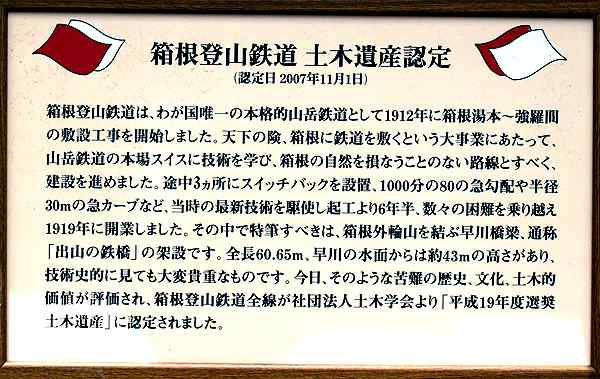 箱根登山鉄道 土木遺産認定
(認定日 2007年11月1日)
箱根登山鉄道は、わが国唯一の本格的山岳鉄道として1912年に箱根湯本～強羅間
の敷設工事を開始しました。天下の険、箱根に鉄道を敷くという大事業にあたって、
山岳鉄道の本場スイスに技術を学び、箱根の自然を損なうことのない路線とすべく、
建設を進めました。途中3ヵ所にスイッチバックを設置、1000分の80の急勾配や半径
30mの急カーブなど、当時の最新技術を駆使し起工より6年半、数々の困難を乗り越え
1919年に開業しました。その中で特筆すべきは、箱根外輪山を結ぶ早川橋梁、通称
「出山の鉄橋」の架設です。全長60.65m、早川の水面からは約43mの高さがあり、
技術史的に見ても大変貴重なものです。今日、そのような苦難の歴史、文化、土木的
価値が評価され、箱根登山鉄道全線が社団法人土木学会より「平成19年度選奨
土木遺産」に認定されました。